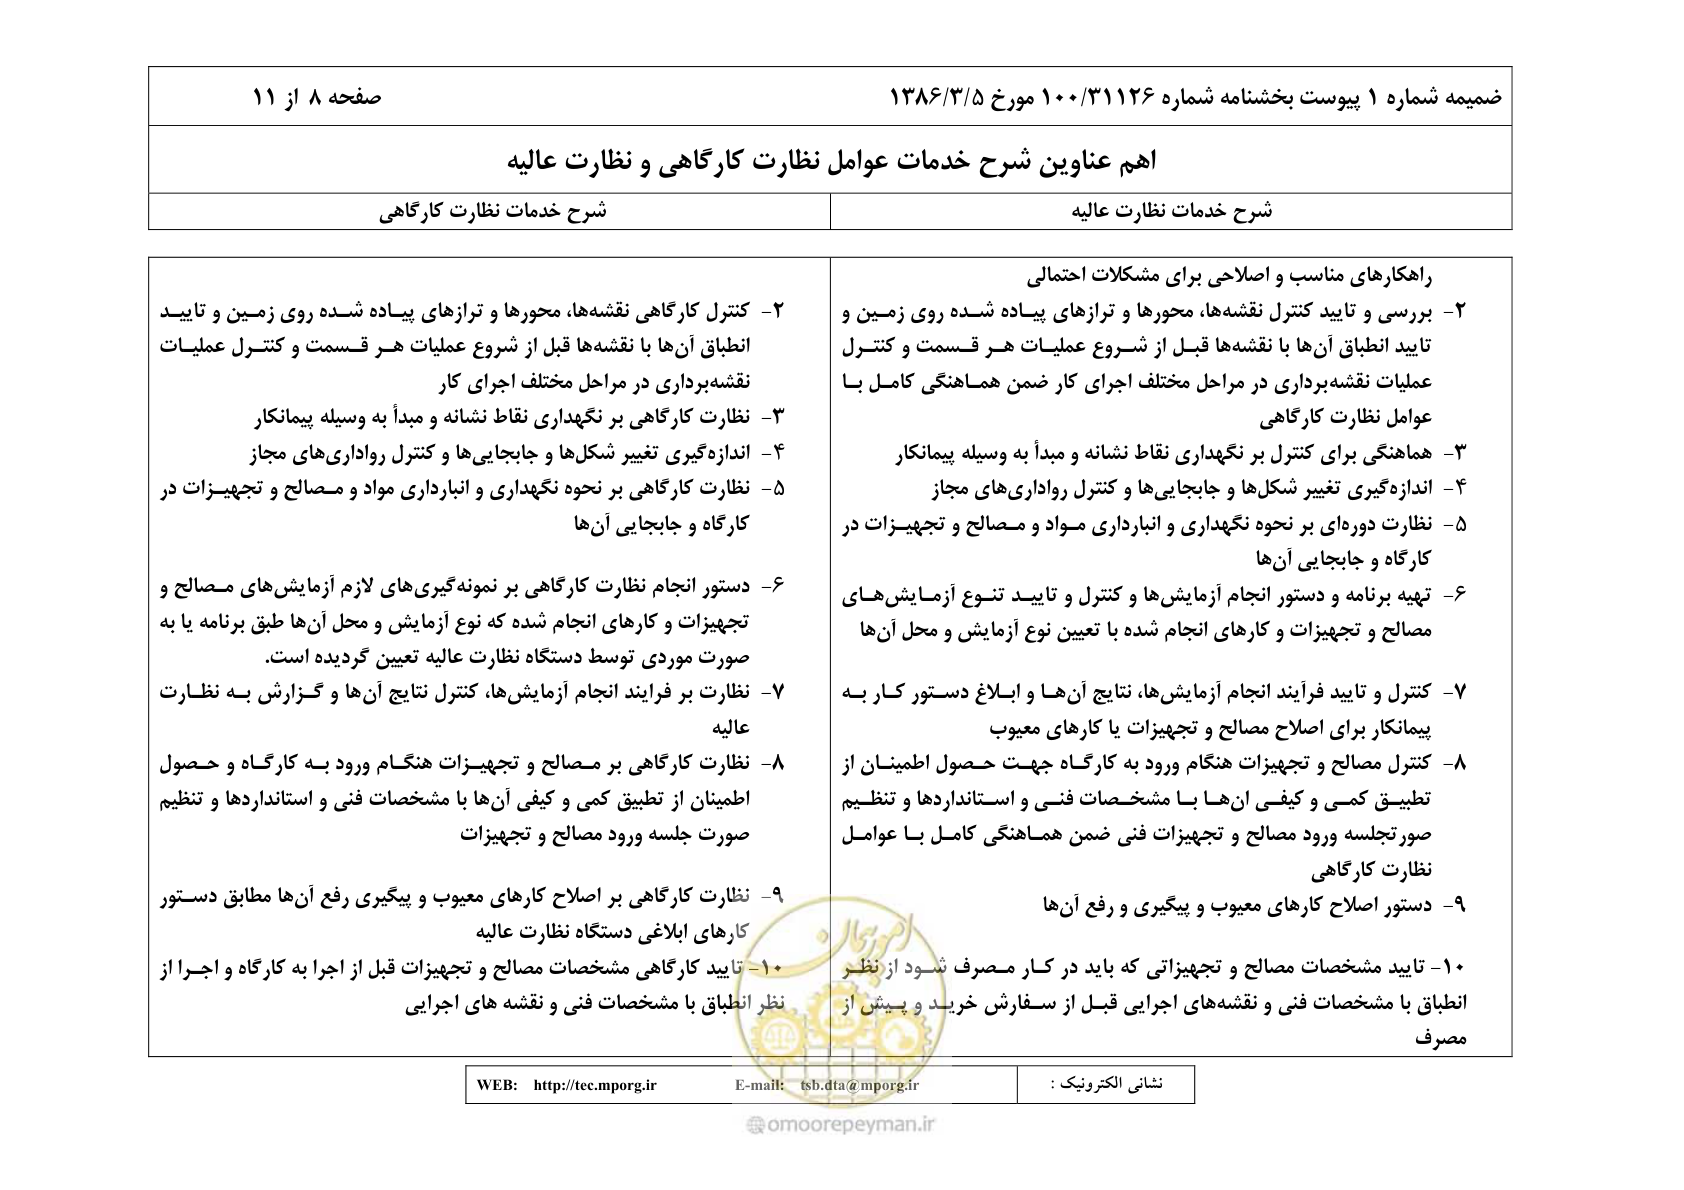 ضمیمه شماره ۱ پیوست بخشنامه شماره ۱۰۰/۳۱۱۲۶ مورخ ۱۳۸۶/۳/۵
صفحه ۸ از ۱۱
اهم عناوین شرح خدمات عوامل نظارت کارگاهی و نظارت عالیه
شرح خدمات نظارت عالیه
شرح خدمات نظارت کارگاهی
راهکارهای مناسب و اصلاحی برای مشکلات احتمالی
۲- بررسی و تایید کنترل نقشه‌ها، محورها و ترازهای پیاده شده روی زمین و
تایید انطباق آن‌ها با نقشه‌ها قبل از شروع عملیات هر قسمت و کنترل
عملیات نقشه‌برداری در مراحل مختلف اجرای کار ضمن هماهنگی کامل با
عوامل نظارت کارگاهی
۳- هماهنگی برای کنترل بر نگهداری نقاط نشانه و مبدأ به وسیله پیمانکار
۴- اندازه‌گیری تغییر شکل‌ها و جابجایی‌ها و کنترل رواداری‌های مجاز
۵- نظارت دوره‌ای بر نحوه نگهداری و انبارداری مواد و مصالح و تجهیزات در
کارگاه و جابجایی آن‌ها
۶- تهیه برنامه و دستور انجام آزمایش‌ها و کنترل و تایید تنوع آزمایش‌های
مصالح و تجهیزات و کارهای انجام شده با تعیین نوع آزمایش و محل آن‌ها
۷- کنترل و تایید فرآیند انجام آزمایش‌ها، نتایج آن‌ها و ابلاغ دستور کار به
پیمانکار برای اصلاح مصالح و تجهیزات یا کارهای معیوب
۸- کنترل مصالح و تجهیزات هنگام ورود به کارگاه جهت حصول اطمینان از
تطبیق کمی و کیفی ان‌ها با مشخصات فنی و استانداردها و تنظیم
صورتجلسه ورود مصالح و تجهیزات فنی ضمن هماهنگی کامل با عوامل
نظارت کارگاهی
۹- دستور اصلاح کارهای معیوب و پیگیری و رفع آن‌ها
۱۰- تایید مشخصات مصالح و تجهیزاتی که باید در کار مصرف شود از نظر
انطباق با مشخصات فنی و نقشه‌های اجرایی قبل از سفارش خرید و پیش از
مصرف
۲- کنترل کارگاهی نقشه‌ها، محورها و ترازهای پیاده شده روی زمین و تایید
انطباق آن‌ها با نقشه‌ها قبل از شروع عملیات هر قسمت و کنترل عملیات
نقشه‌برداری در مراحل مختلف اجرای کار
۳- نظارت کارگاهی بر نگهداری نقاط نشانه و مبدأ به وسیله پیمانکار
۴- اندازه‌گیری تغییر شکل‌ها و جابجایی‌ها و کنترل رواداری‌های مجاز
۵- نظارت کارگاهی بر نحوه نگهداری و انبارداری مواد و مصالح و تجهیزات در
کارگاه و جابجایی آن‌ها
۶- دستور انجام نظارت کارگاهی بر نمونه‌گیری‌های لازم آزمایش‌های مصالح و
تجهیزات و کارهای انجام شده که نوع آزمایش و محل آن‌ها طبق برنامه یا به
صورت موردی توسط دستگاه نظارت عالیه تعیین گردیده است.
۷- نظارت بر فرایند انجام آزمایش‌ها، کنترل نتایج آن‌ها و گزارش به نظارت
عالیه
۸- نظارت کارگاهی بر مصالح و تجهیزات هنگام ورود به کارگاه و حصول
اطمینان از تطبیق کمی و کیفی آن‌ها با مشخصات فنی و استانداردها و تنظیم
صورت جلسه ورود مصالح و تجهیزات
۹- نظارت کارگاهی بر اصلاح کارهای معیوب و پیگیری رفع آن‌ها مطابق دستور
کارهای ابلاغی دستگاه نظارت عالیه
۱۰- تایید کارگاهی مشخصات مصالح و تجهیزات قبل از اجرا به کارگاه و اجرا از
نظر انطباق با مشخصات فنی و نقشه های اجرایی
امور پیمان
نشانی الکترونیک :
WEB: http://tec.mporg.ir E-mail: tsb.dta@mporg.ir
@omoorepeyman.ir